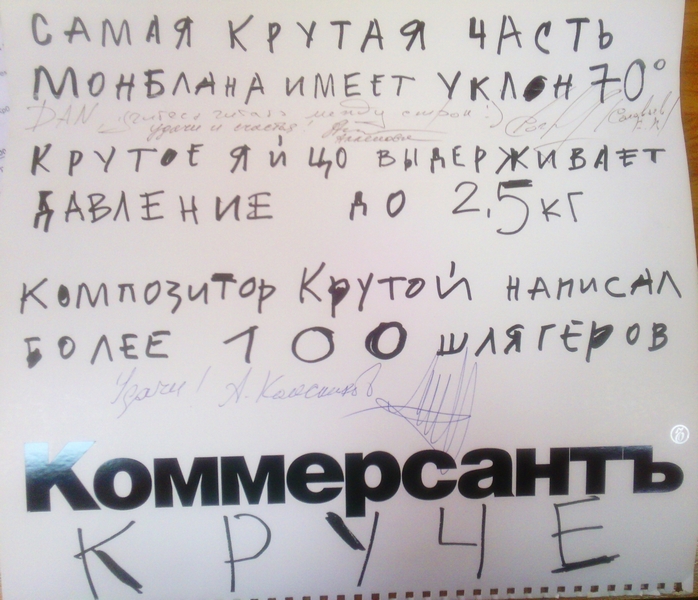 САМАЯ КРУТАЯ ЧАСТЬ
МОНБЛАНА ИМЕЕТ УКЛОН 70°
DAN читать между строк :)
удачи и счастья!
КРУТОЕ ЯЙЦО ВЫДЕРЖИВАЕТ
ДАВЛЕНИЕ ДО 2,5 КГ
КОМПОЗИТОР КРУТОЙ НАПИСАЛ
БОЛЕЕ 100 ШЛЯГЕРОВ
Удачи! А. Колесников
Коммерсантъ
КРУЧЕ